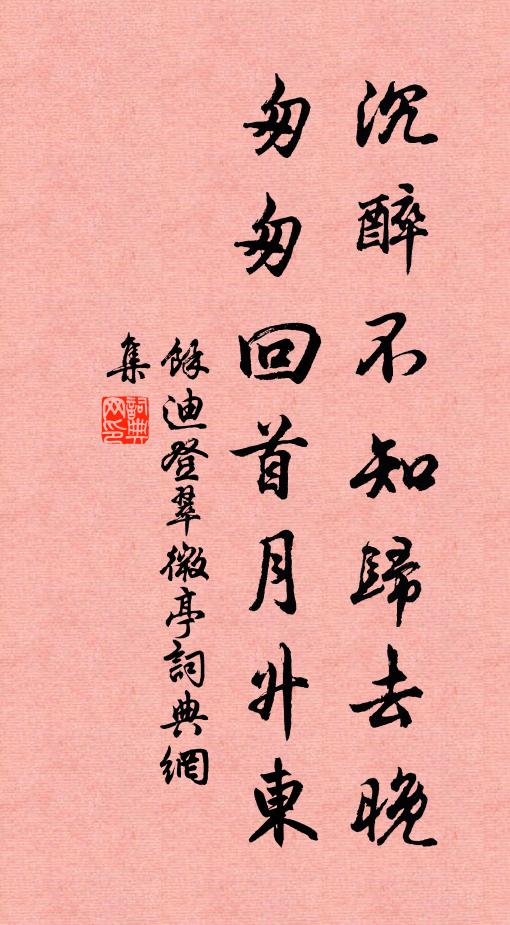 沉醉不知歸去晚
匆匆回首月升東
餘迪登翠微亭詞典網
集
詞典
网印